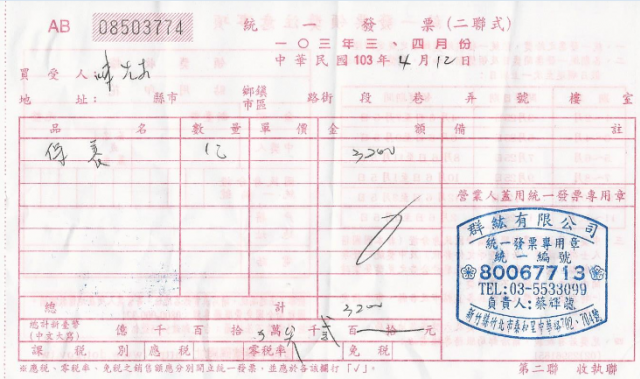 AB 08503774 統一發票(二聯式)
一〇三年三、四月份
中華民國103年4月12日
買受人:
地址: 縣市 鄉鎮市區 路街 段 巷 弄 號 樓 室
品名 數量 單價 金額 備註
保養 1 3200
營業人蓋用統一發票專用章
群紘有限公司
統一發票專用章
統一編號
80067713
TEL:03-5533099
負責人:蔡
新竹縣竹北市泰和里中華路702、704號
總計 3200
總計新臺幣(中文大寫) 億 千 百 拾 萬 千 百 拾 元
課稅別 應稅 零稅率 免稅
※應稅、零稅率、免稅之銷售額應分別開立統一發票,並應於各該欄打「√」。
第二聯 收執聯